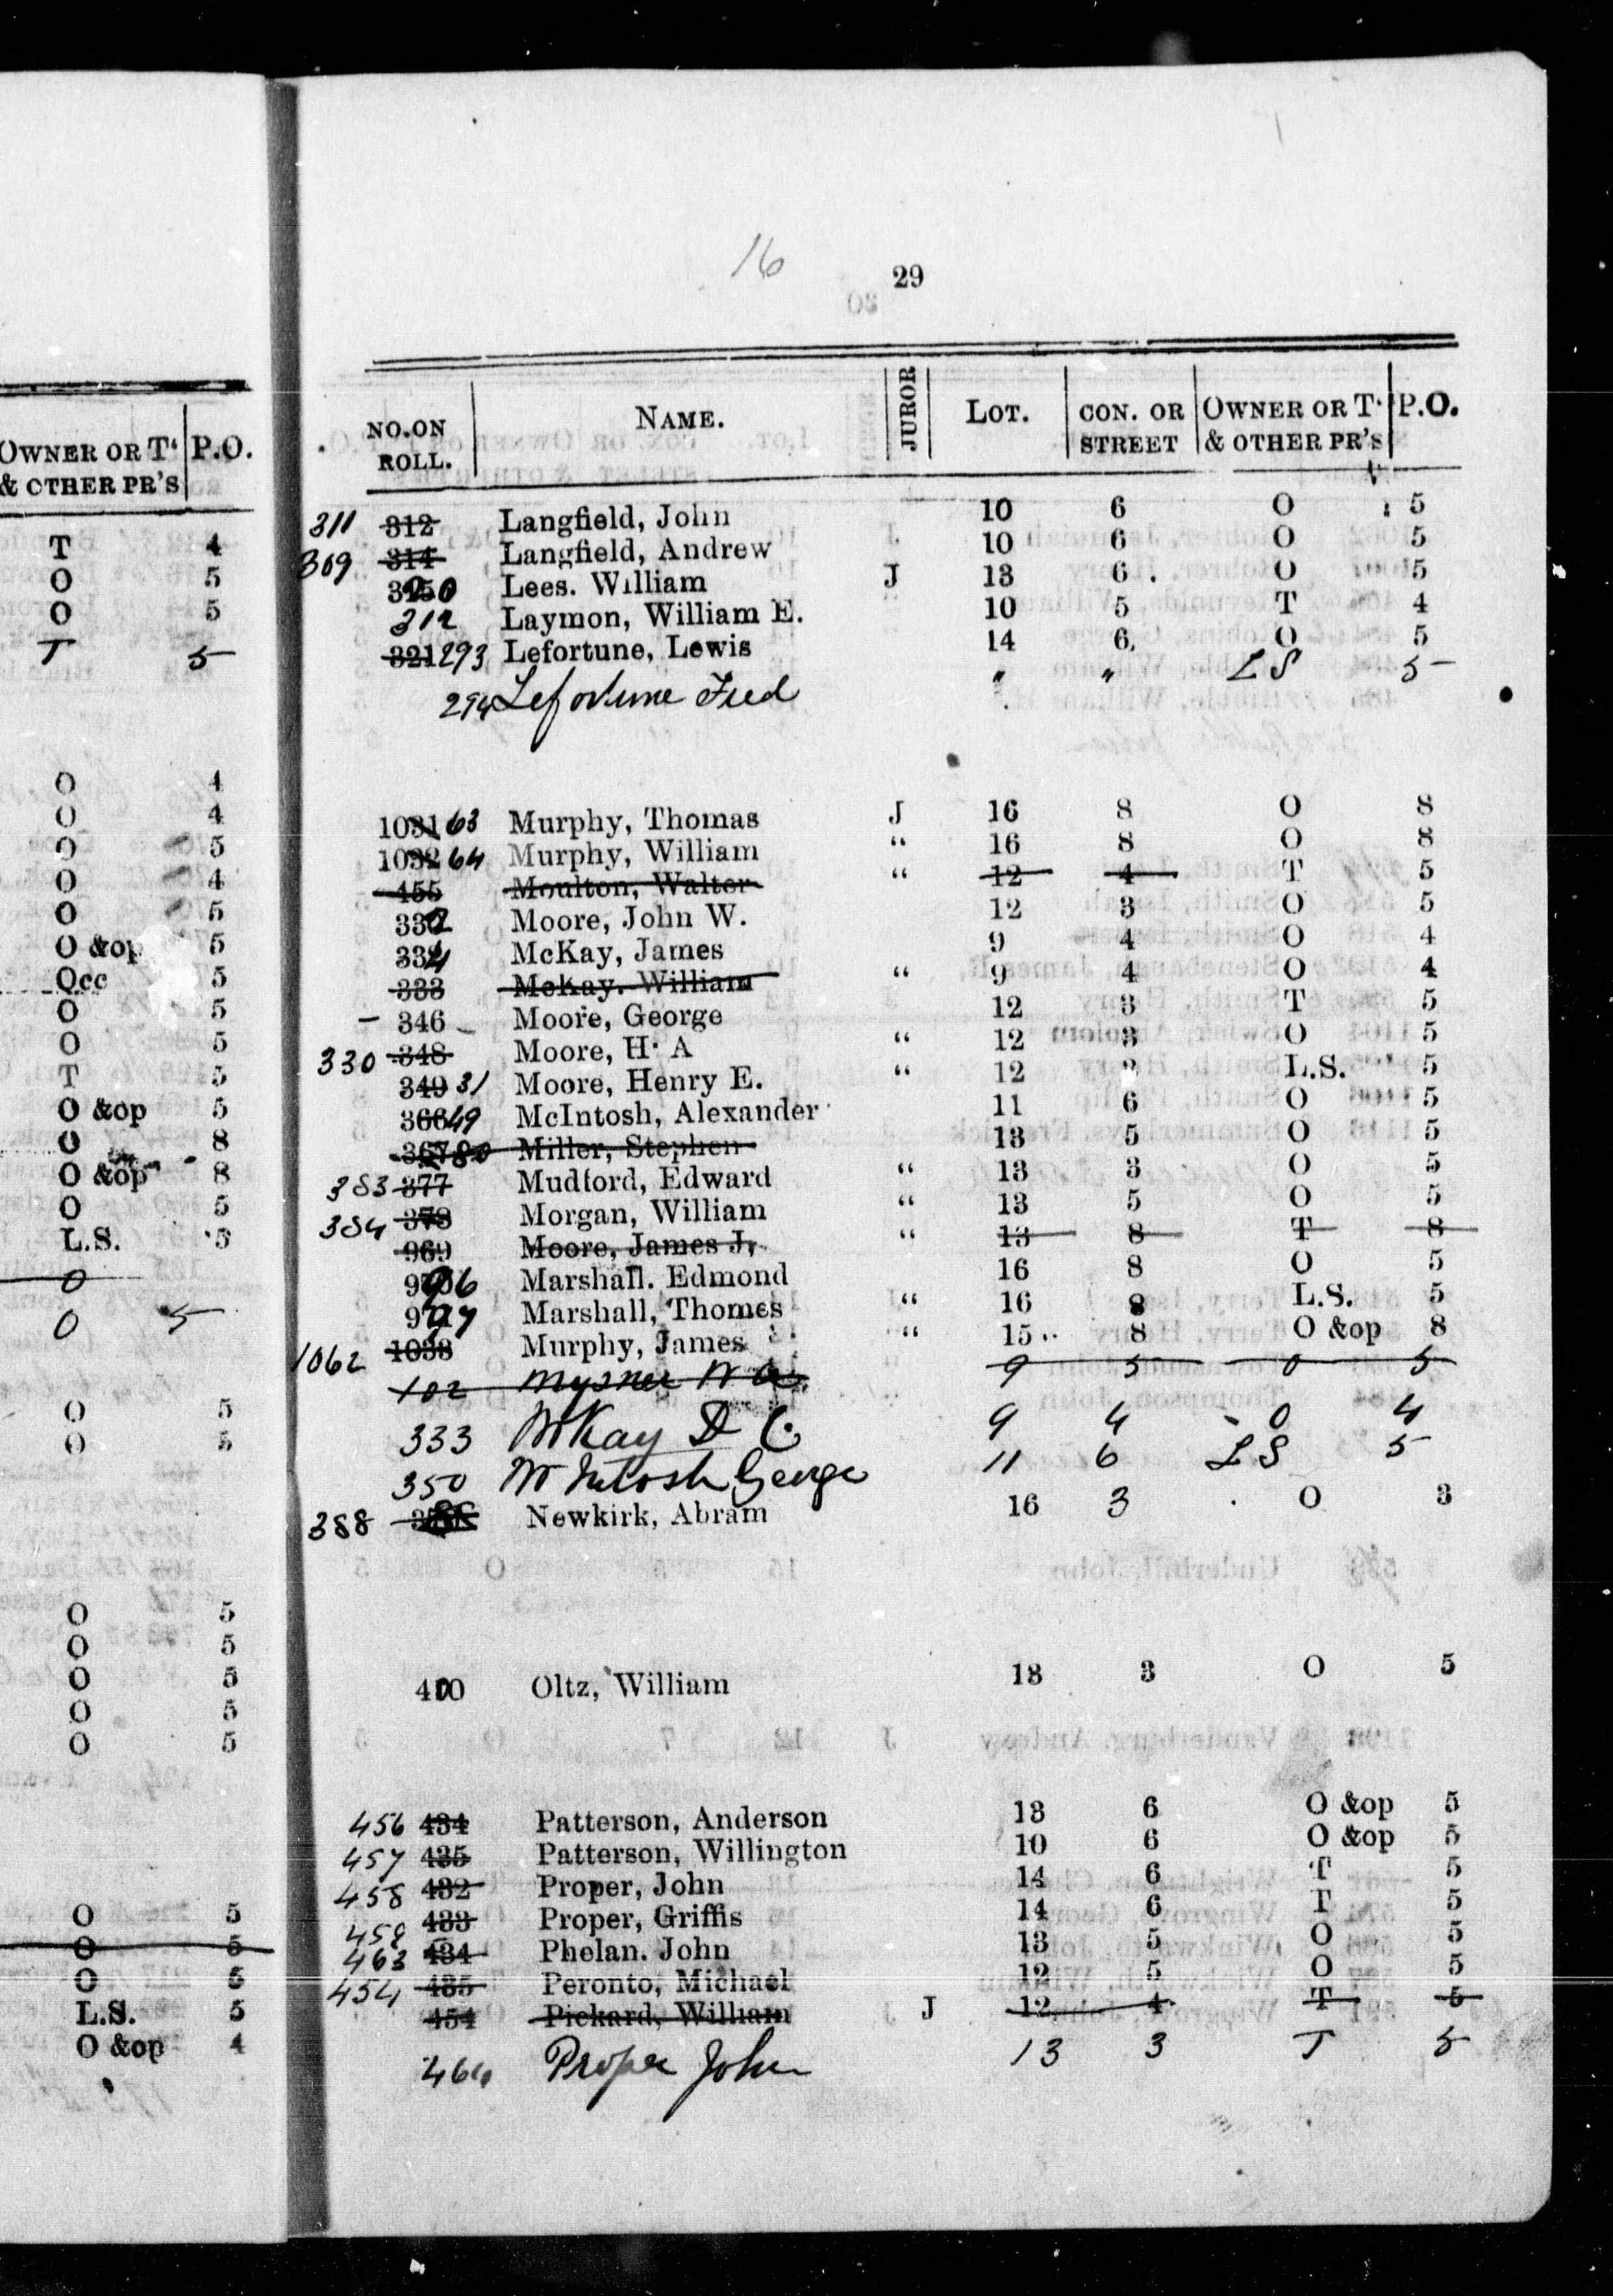 OWNER OR T. P.O.
& OTHER PR'S
T 4
O 5
O 5
T 5
O 4
O 4
O 5
O 4
O 5
O &op 5
Occ 5
O 5
O 5
T 5
O &op 5
O 8
O &op 8
O 5
L.S. 5
O
O 5
O 5
O 5
O 5
O 5
O 5
O 5
O 5
O 5
O 5
O 5
L.S. 5
O &op 4
16
29
NO. ON ROLL. NAME. JUROR LOT. CON. OR STREET OWNER OR T. & OTHER PR'S P.O.
311 312 Langfield, John 10 6 O 5
309 314 Langfield, Andrew 10 6 O 5
Lees. William J 13 6 O 5
312 Laymon, William E. 10 5 T 4
321 293 Lefortune, Lewis 14 6 O 5
294 Lefortune Fred " " LS 5
1031 63 Murphy, Thomas J 16 8 O 8
1032 64 Murphy, William " 16 8 O 8
455 Moulton, Walter " 12 4 T 5
332 Moore, John W. 12 3 O 5
334 McKay, James 9 4 O 4
333 McKay. William " 9 4 O 4
346 Moore, George 12 3 T 5
330 348 Moore, H. A " 12 3 O 5
349 31 Moore, Henry E. " 12 L.S. 5
366 49 McIntosh, Alexander 11 6 O 5
367 80 Miller, Stephen 13 5 O 5
383 377 Mudford, Edward " 13 3 O 5
384 378 Morgan, William " 13 5 O 5
969 Moore, James J, " 13 8 T 8
Marshall. Edmond 16 8 O 5
Marshall, Thomes " 16 8 L.S. 5
1062 1038 Murphy, James " 15 8 O &op 8
102 9 5 O 5
333 McKay D C. 9 4 O 4
350 McIntosh George 11 6 LS 5
388 Newkirk, Abram 16 3 O 3
400 Oltz, William 13 3 O 5
456 434 Patterson, Anderson 13 6 O &op 5
457 435 Patterson, Willington 10 6 O &op 5
458 432 Proper, John 14 6 T 5
459 433 Proper, Griffis 14 6 T 5
463 434 Phelan. John 13 5 O 5
454 435 Peronto, Michael 12 5 O 5
454 Pickard, William J 12 4 T 5
Proper John 13 3 T 5